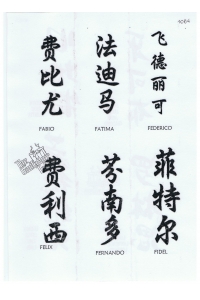 1064
费比尤
法迪马
飞德丽可
FABIO
FATIMA
FEDERICO
费利西
芬南多
菲特尔
FELIX
FERNANDO
FIDEL